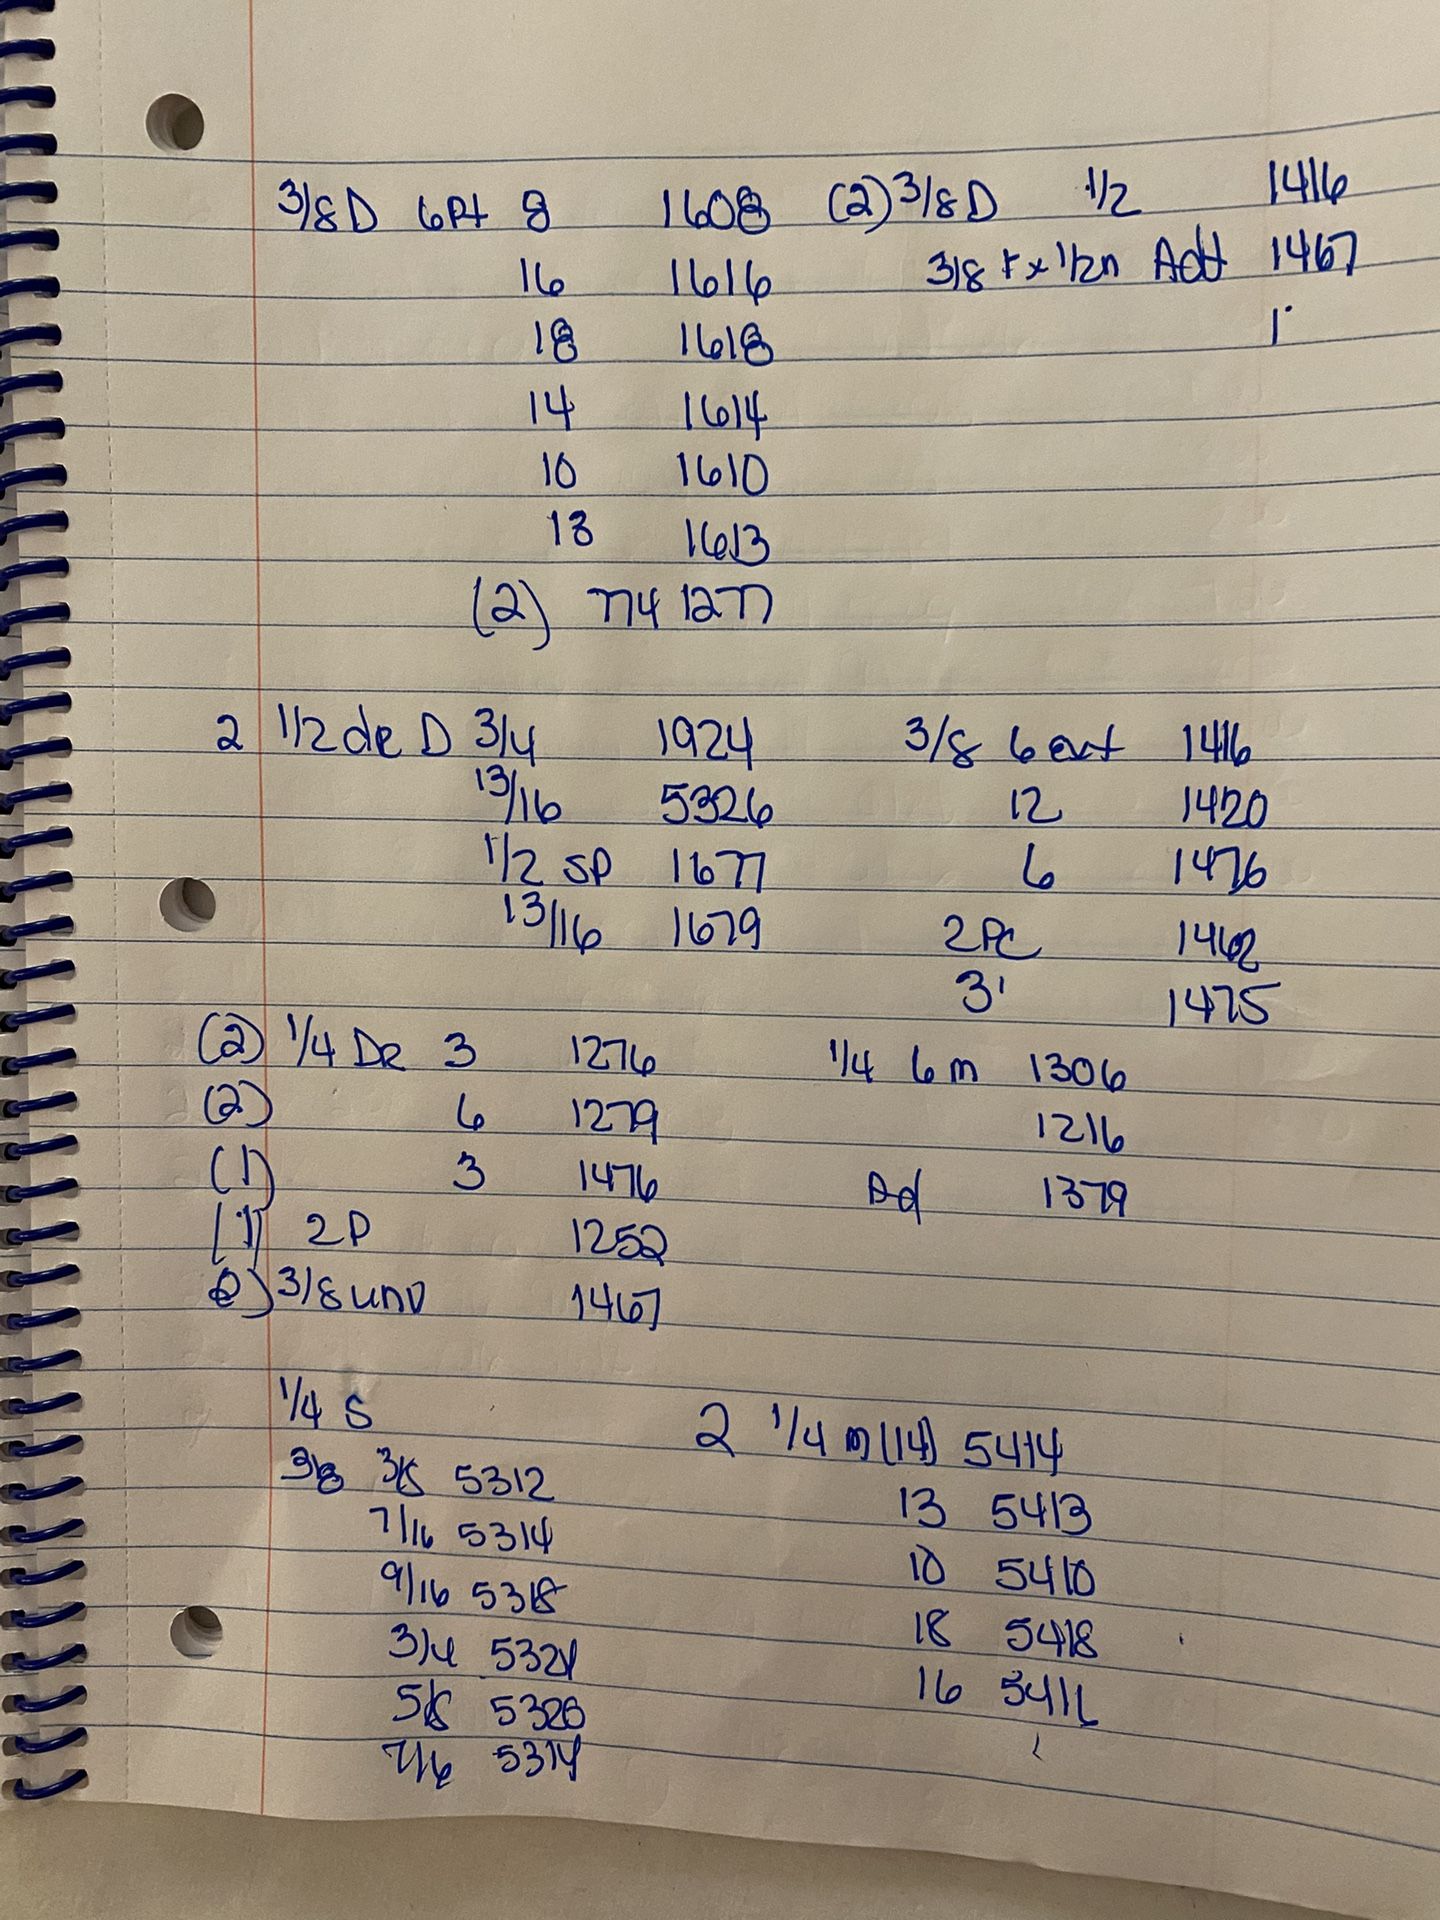 3/8 D 6Pt 8 1608 (2) 3/8 D 1/2 1416
16 1616 3/8 F x 1/2 n Adt 1467
18 1618
14 1614
10 1610
13 1613
(2) 774 1277
2 1/2 de D 3/4 1924 3/8 6 ext 1416
13/16 5326 12 1420
1/2 SP 1677 6 1476
13/16 1679 2PC 1462
3' 1475
(2) 1/4 De 3 1276 1/4 6 m 1306
(2) 6 1279 1216
(1) 3 1476 Ad 1379
(1) 2P 1252
3/8 UNV 1467
1/4 S 2 1/4 m (14) 5414
3/8 3/8 5312 13 5413
7/16 5314 10 5410
9/16 5318 18 5418
3/4 5324 16
5/8 5320
7/16 5314